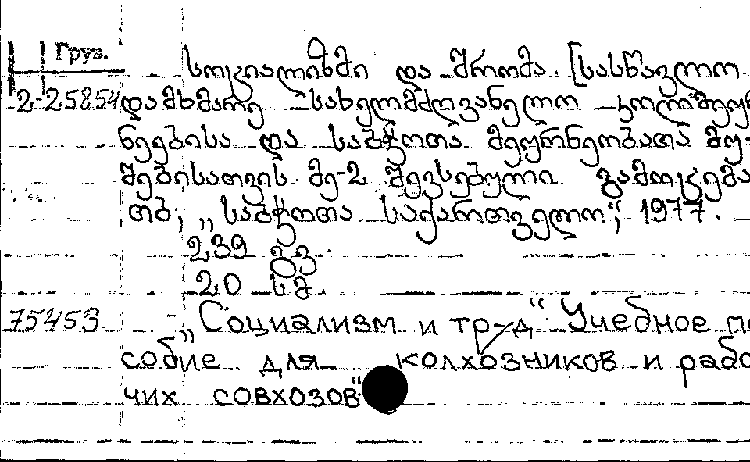 Груз.
სოციალიზმი და შრომა. [სასწავლო
2-25854 დამხმარე სახელმძღვანელო კოლმეურ
ნეებისა და საბჭოთა მეურნეობათა მუ-
შებისათვის მე-2 შევსებული გამოცემა
თბ., „საბჭოთა საქართველო", 1977.
239 გვ.
20 სმ
75453 „Социализм и труд“ Учебное по
собие для колхозников и рабо
чих совхозов“